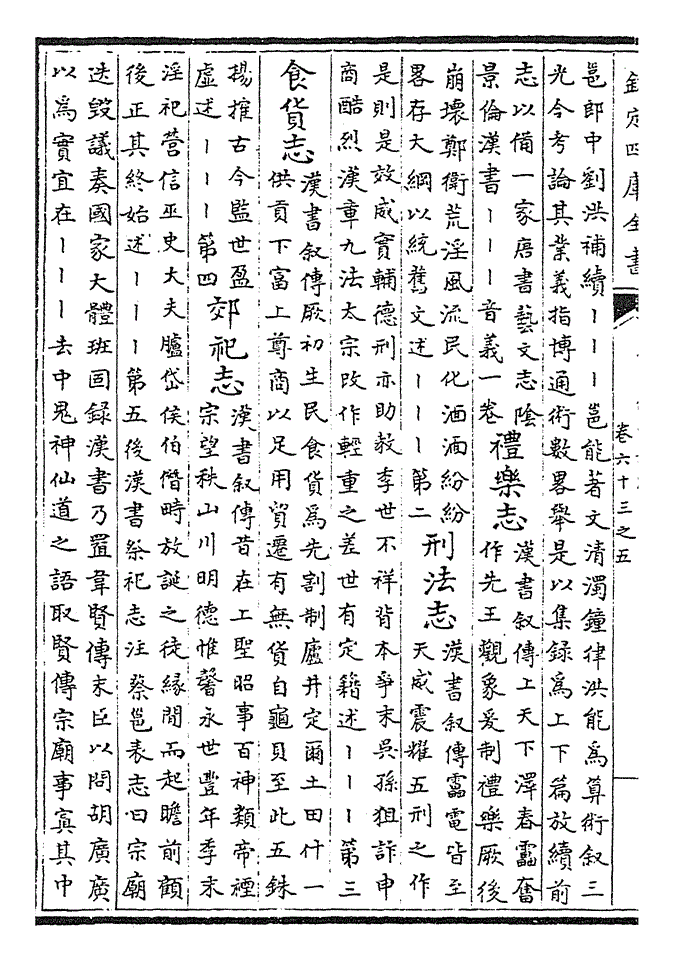 欽定四庫全書
卷六十三之五
邕郎中劉洪補續丨丨丨邕能著文清濁鐘律洪能為算術叙三
光今考論其業義指博通術數畧舉是以集録為上下篇放續前
志以備一家唐書藝文志陰
景倫漢書丨丨丨音義一卷
禮樂志
漢書叙傳上天下澤春靁奮
作先王觀象爰制禮樂厥後
崩壞鄭衛荒淫風流民化湎湎紛紛
畧存大綱以統舊文述丨丨丨第二
刑法志
漢書叙傳靁電皆至
天威震耀五刑之作
是則是效威實輔德刑亦助教季世不祥背本爭末吳孫狙詐申
商酷烈漢章九法太宗改作輕重之差世有定籍述丨丨丨第三
食貨志
漢書叙傳厥初生民食貨為先割制廬井定爾土田什一
供貢下富上尊商以足用貿遷有無貨自龜貝至此五銖
揚搉古今監世盈
虛述丨丨丨第四
郊祀志
漢書叙傳昔在上聖昭事百神類帝禋
宗望秩山川明德惟馨永世豐年季末
淫祀營信巫史大夫臚岱侯伯僭時放誕之徒緣間而起瞻前顧
後正其終始述丨丨丨第五後漢書祭祀志注蔡邕表志曰宗廟
迭毀議奏國家大體班固録漢書乃置韋賢傳末臣以問胡廣廣
以為實宜在丨丨丨去中鬼神仙道之語取賢傳宗廟事寘其中